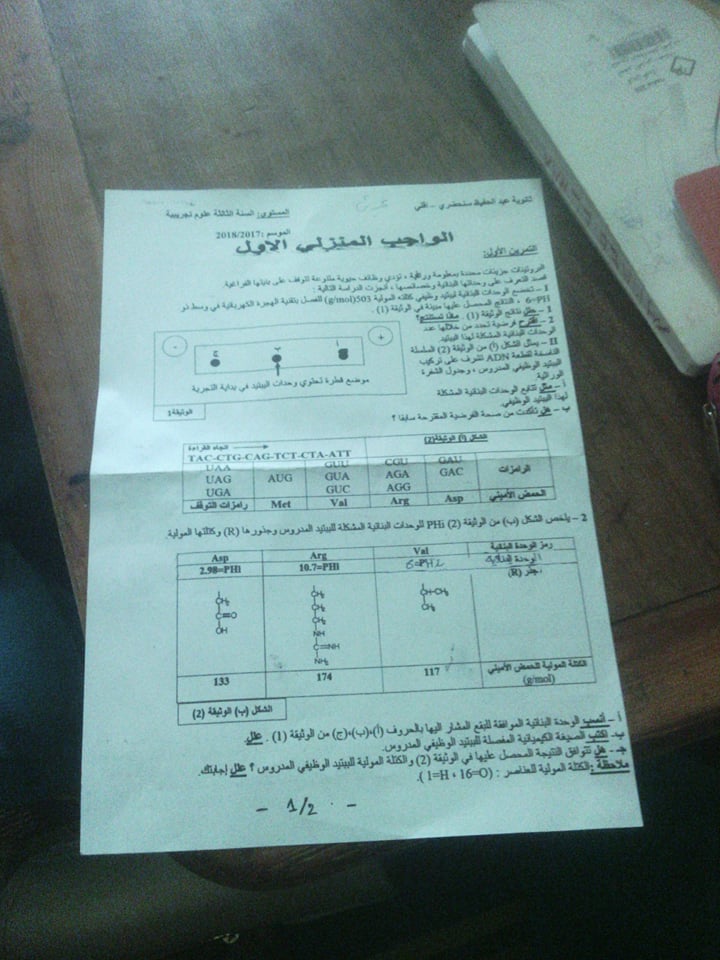 ثانوية عبد الحفيظ سنحضري – اقلي
المستوى: السنة الثالثة علوم تجريبية
الموسم :2018/2017
الواجب المنزلي الاول
التمرين الأول:
البروتينات جزيئات محددة بمعلومة وراثية ، تؤدي وظائف حيوية متنوعة تتوقف على بنايتها الفراغية.
قصد التعرف على وحداتها البنائية وخصائصها ، أنجزت الدراسة التالية :
I – تخضع الوحدات البنائية لببتيد وظيفي كتلته المولية 503(g/mol) للفصل بتقنية الهجرة الكهربائية في وسط ذو
6=PH ، النتائج المحصل عليها مبينة في الوثيقة (1) .
1 – حلل نتائج الوثيقة (1) . ماذا تستنتج؟
2 – اقترح فرضية تحدد من خلالها عدد
الوحدات البنائية المشكلة لهذا الببتيد.
II – يمثل الشكل (أ) من الوثيقة (2) السلسلة
الناسخة لقطعة ADN تشرف على تركيب
الببتيد الوظيفي المدروس ، وجدول الشفرة
الوراثية
أ – مثل تتابع الوحدات البنائية المشكلة
لهذا الببتيد الوظيفي.
ب – هل تأكدت من صحة الفرضية المقترحة سابقا ؟
+ -
أ ب ج
موضع قطرة تحتوي وحدات الببتيد في بداية التجربة
الوثيقة1
الشكل (أ) الوثيقة(2)
اتجاه القراءة
TAC-CTG-CAG-TCT-CTA-ATT
UAA GUU CGU GAU
UAG AUG GUA AGA GAC الرامزات
UGA GUC AGG
رامزات التوقف Met Val Arg Asp الحمض الأميني
2 – يلخص الشكل (ب) من الوثيقة (2) PHi للوحدات البنائية المشكلة للببتيد المدروس وجذورها (R) وكتلتها المولية.
Asp Arg Val رمز الوحدة البنائية
2.98=PHi 10.7=PHi 6=PHi
جذر (R)
CH₂ CH₂ CH-CH₃
C=O CH₂ CH₃
OH CH₂
NH
C=NH
NH₂
133 174 117 الكتلة المولية للحمض الأميني
(g/mol)
الشكل (ب) الوثيقة (2)
أ – أنسب الوحدة البنائية الموافقة للبقع المشار اليها بالحروف (أ)،(ب)،(ج) من الوثيقة (1) . علل.
ب- اكتب الصيغة الكيميائية المفصلة للببتيد الوظيفي المدروس.
جـ - هل تتوافق النتيجة المحصل عليها في الوثيقة (2) والكتلة المولية للببتيد الوظيفي المدروس ؟ علل إجابتك.
ملاحظة :الكتلة المولية للعناصر : (1=H ، 16=O ).
- 1/2 -